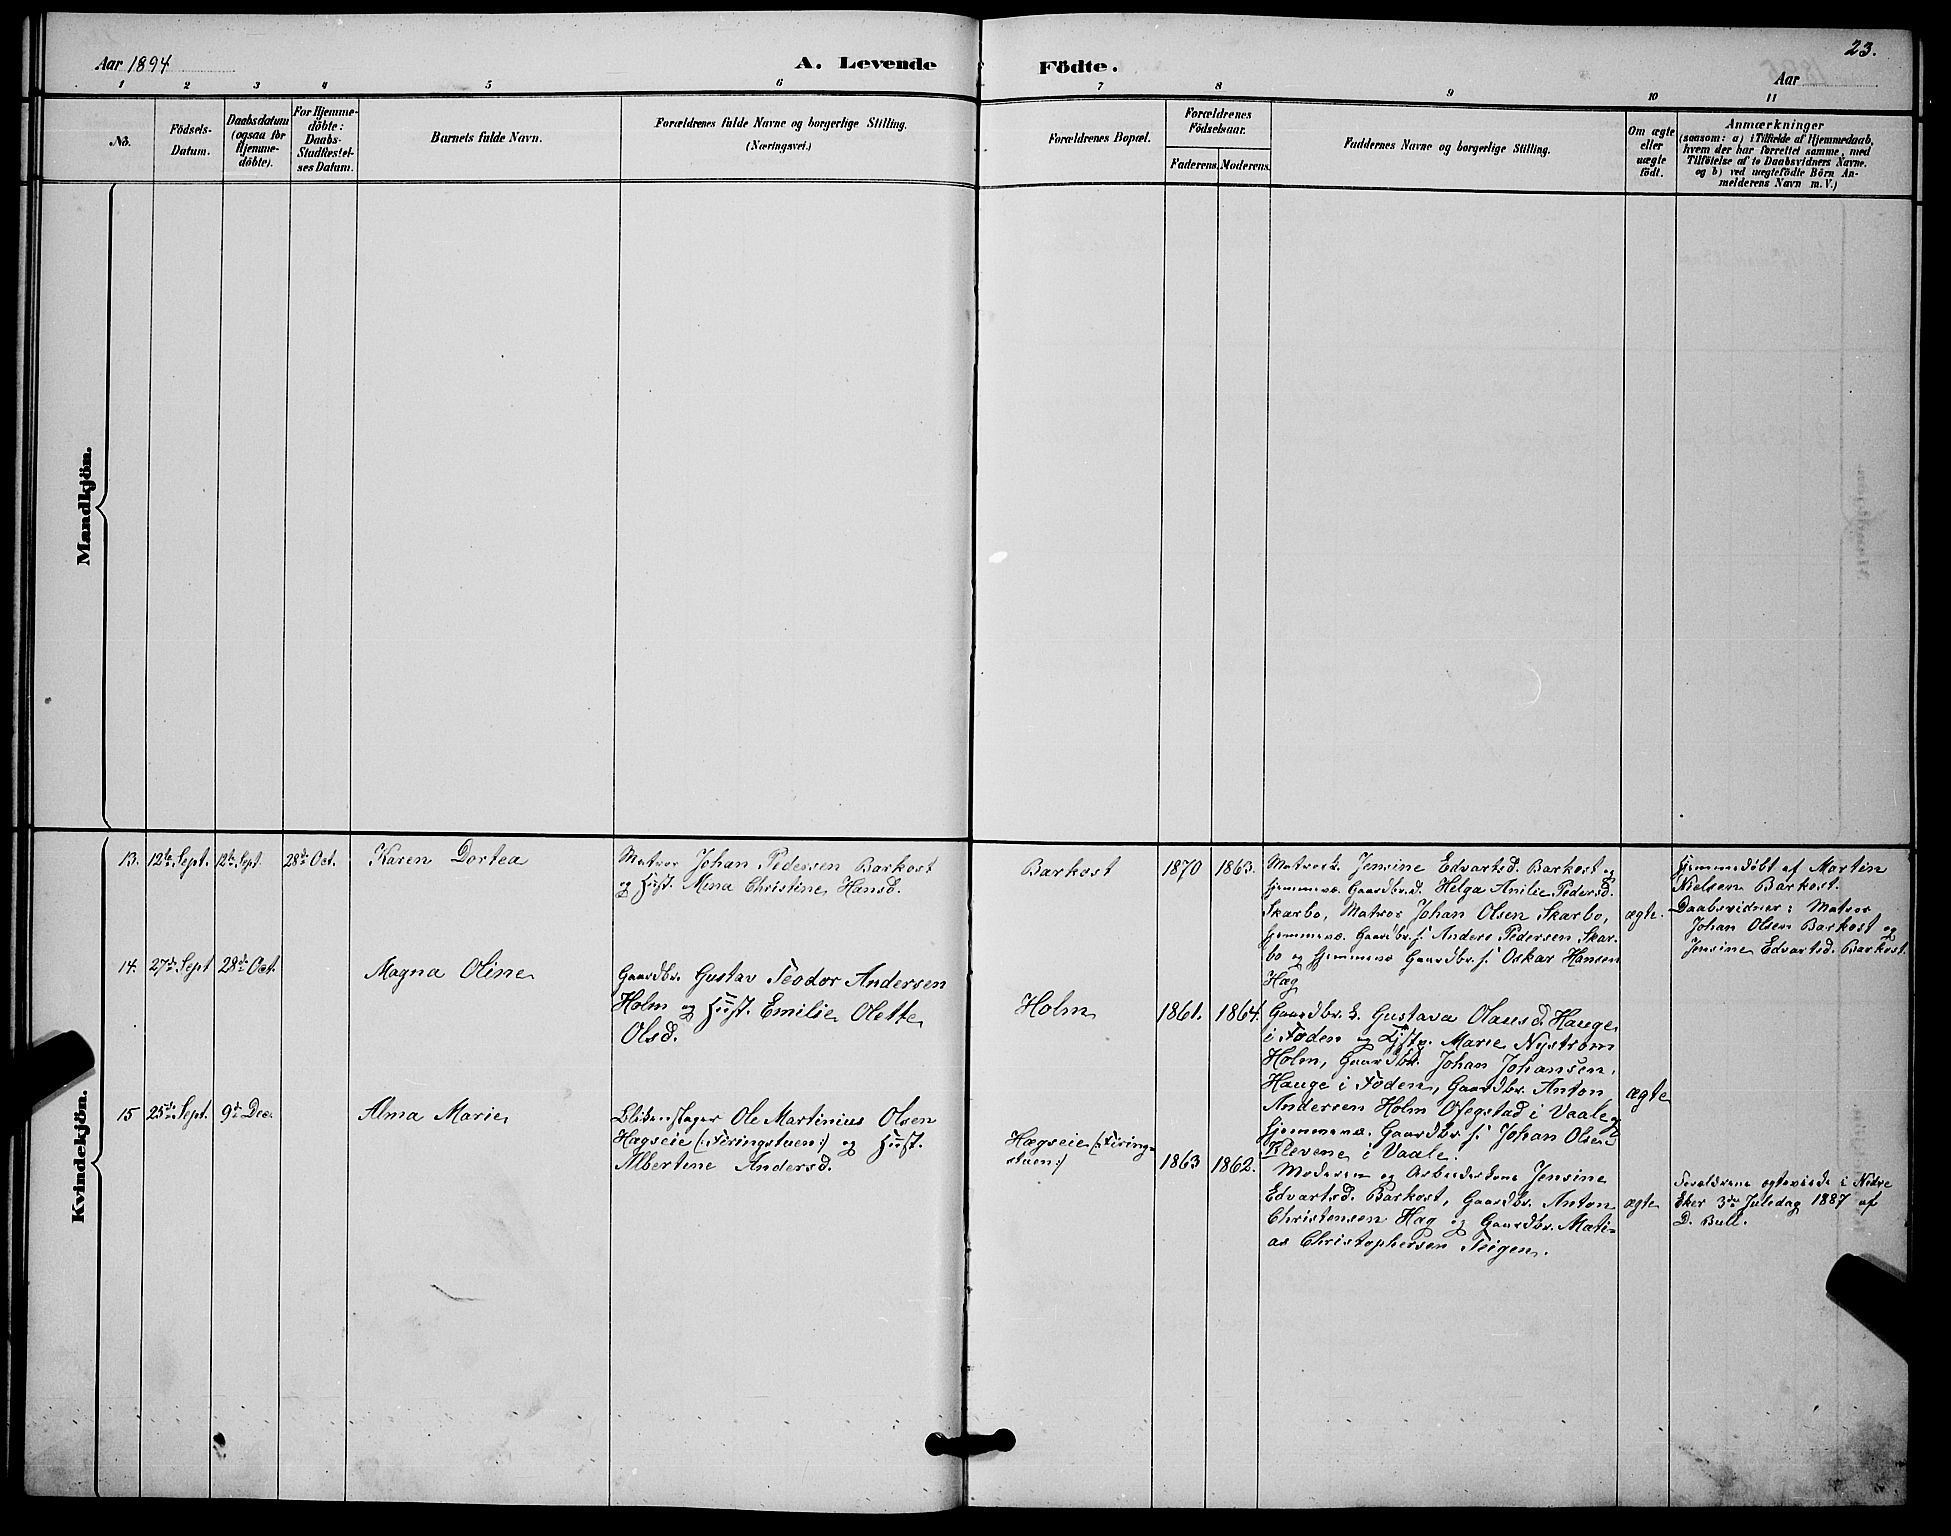 Aar 1894
A. Levende Födte.
23.
Aar
1 2 3 4 5 6 7 8 9 10 11
No.
Födsels-
Datum.
Daabsdatum
(ogsaa for
Hjemme-
döbte).
For Hjemme-
döbte:
Daabs-
Stadfæstel-
ses Datum.
Barnets fulde Navn.
Forældrenes fulde Navne og borgerlige Stilling.
(Næringsvei.)
Forældrenes Bopæl.
Forældrenes
Födselsaar.
Faderens. Moderens.
Faddernes Navne og borgerlige Stilling.
Om ægte
eller
uægte
födt.
Anmærkninger
(saasom: a) i Tilfælde af Hjemmedaab,
hvem der har forrettet samme, med
Tilföielse af to Daabsvidners Navne.
og b) ved uægtefödte Börn An-
melderens Navn m. V.)
Mandkjön.
Kvindekjön.
13. 12te Sept. 12te Sept. 28de Oct. Karen Dortea
Matros Johan Pedersen Barkost
og Hust. Mina Christine Hansd.
Barkost 1870 1863.
Matrosk. Jensine Edvartsd. Barkost og
hjemmevæ. Gaardbr.d. Helga Anilie Pedersd.
Skarbo, Matros Johan Olsen Skarbo,
hjemmevæ. Gaardbr.s. Anders Pedersen Skar-
bo og hjemmevæ Gaardbr.s. Oskar Hansen
Hæg
ægte.
Hjemmedöbt af Martin
Nielsen Barkost.
Daabsvidner: Matros
Johan Olsen Barkost og
Jensine Edvartsd. Barkost.
14. 27de Sept 28de Oct. Magna Oline
Gaardbr. Gustav Teodor Andersen
Holm og Hust. Emilie Olette
Olsd.
Holm 1861. 1864.
Gaardbr.k. Gustava Olausd. Hauge
i Foden og Tjstp. Marie Nyström
Holm, Gaardbr. Johan Johansen
Hauge i Foden, Gaardbr. Anton
Andersen Holm Ofegstad i Vaale og
hjemmevæ. Gaardbr.s. Johan Olsen
Klevene i Vaale.
ægte
15 25de Sept. 9de Dec. Alma Marie
Blikenslager Ole Martinius Olsen
Hagseie (:Firingstuen:) og Hust.
Albertine Andersd.
Hægseie (:Firing-
stuen:) 1863 1862.
Moderen og Arbeiderkone Jensine
Edvartsd. Barkost, Gaardbr. Anton
Christensen Hag og Gaardbr. Mati-
as Christophersen Teigen.
ægte
Forældrene egteviede i Nedre
Eker 3die Juledag 1887 af
D. Bull.